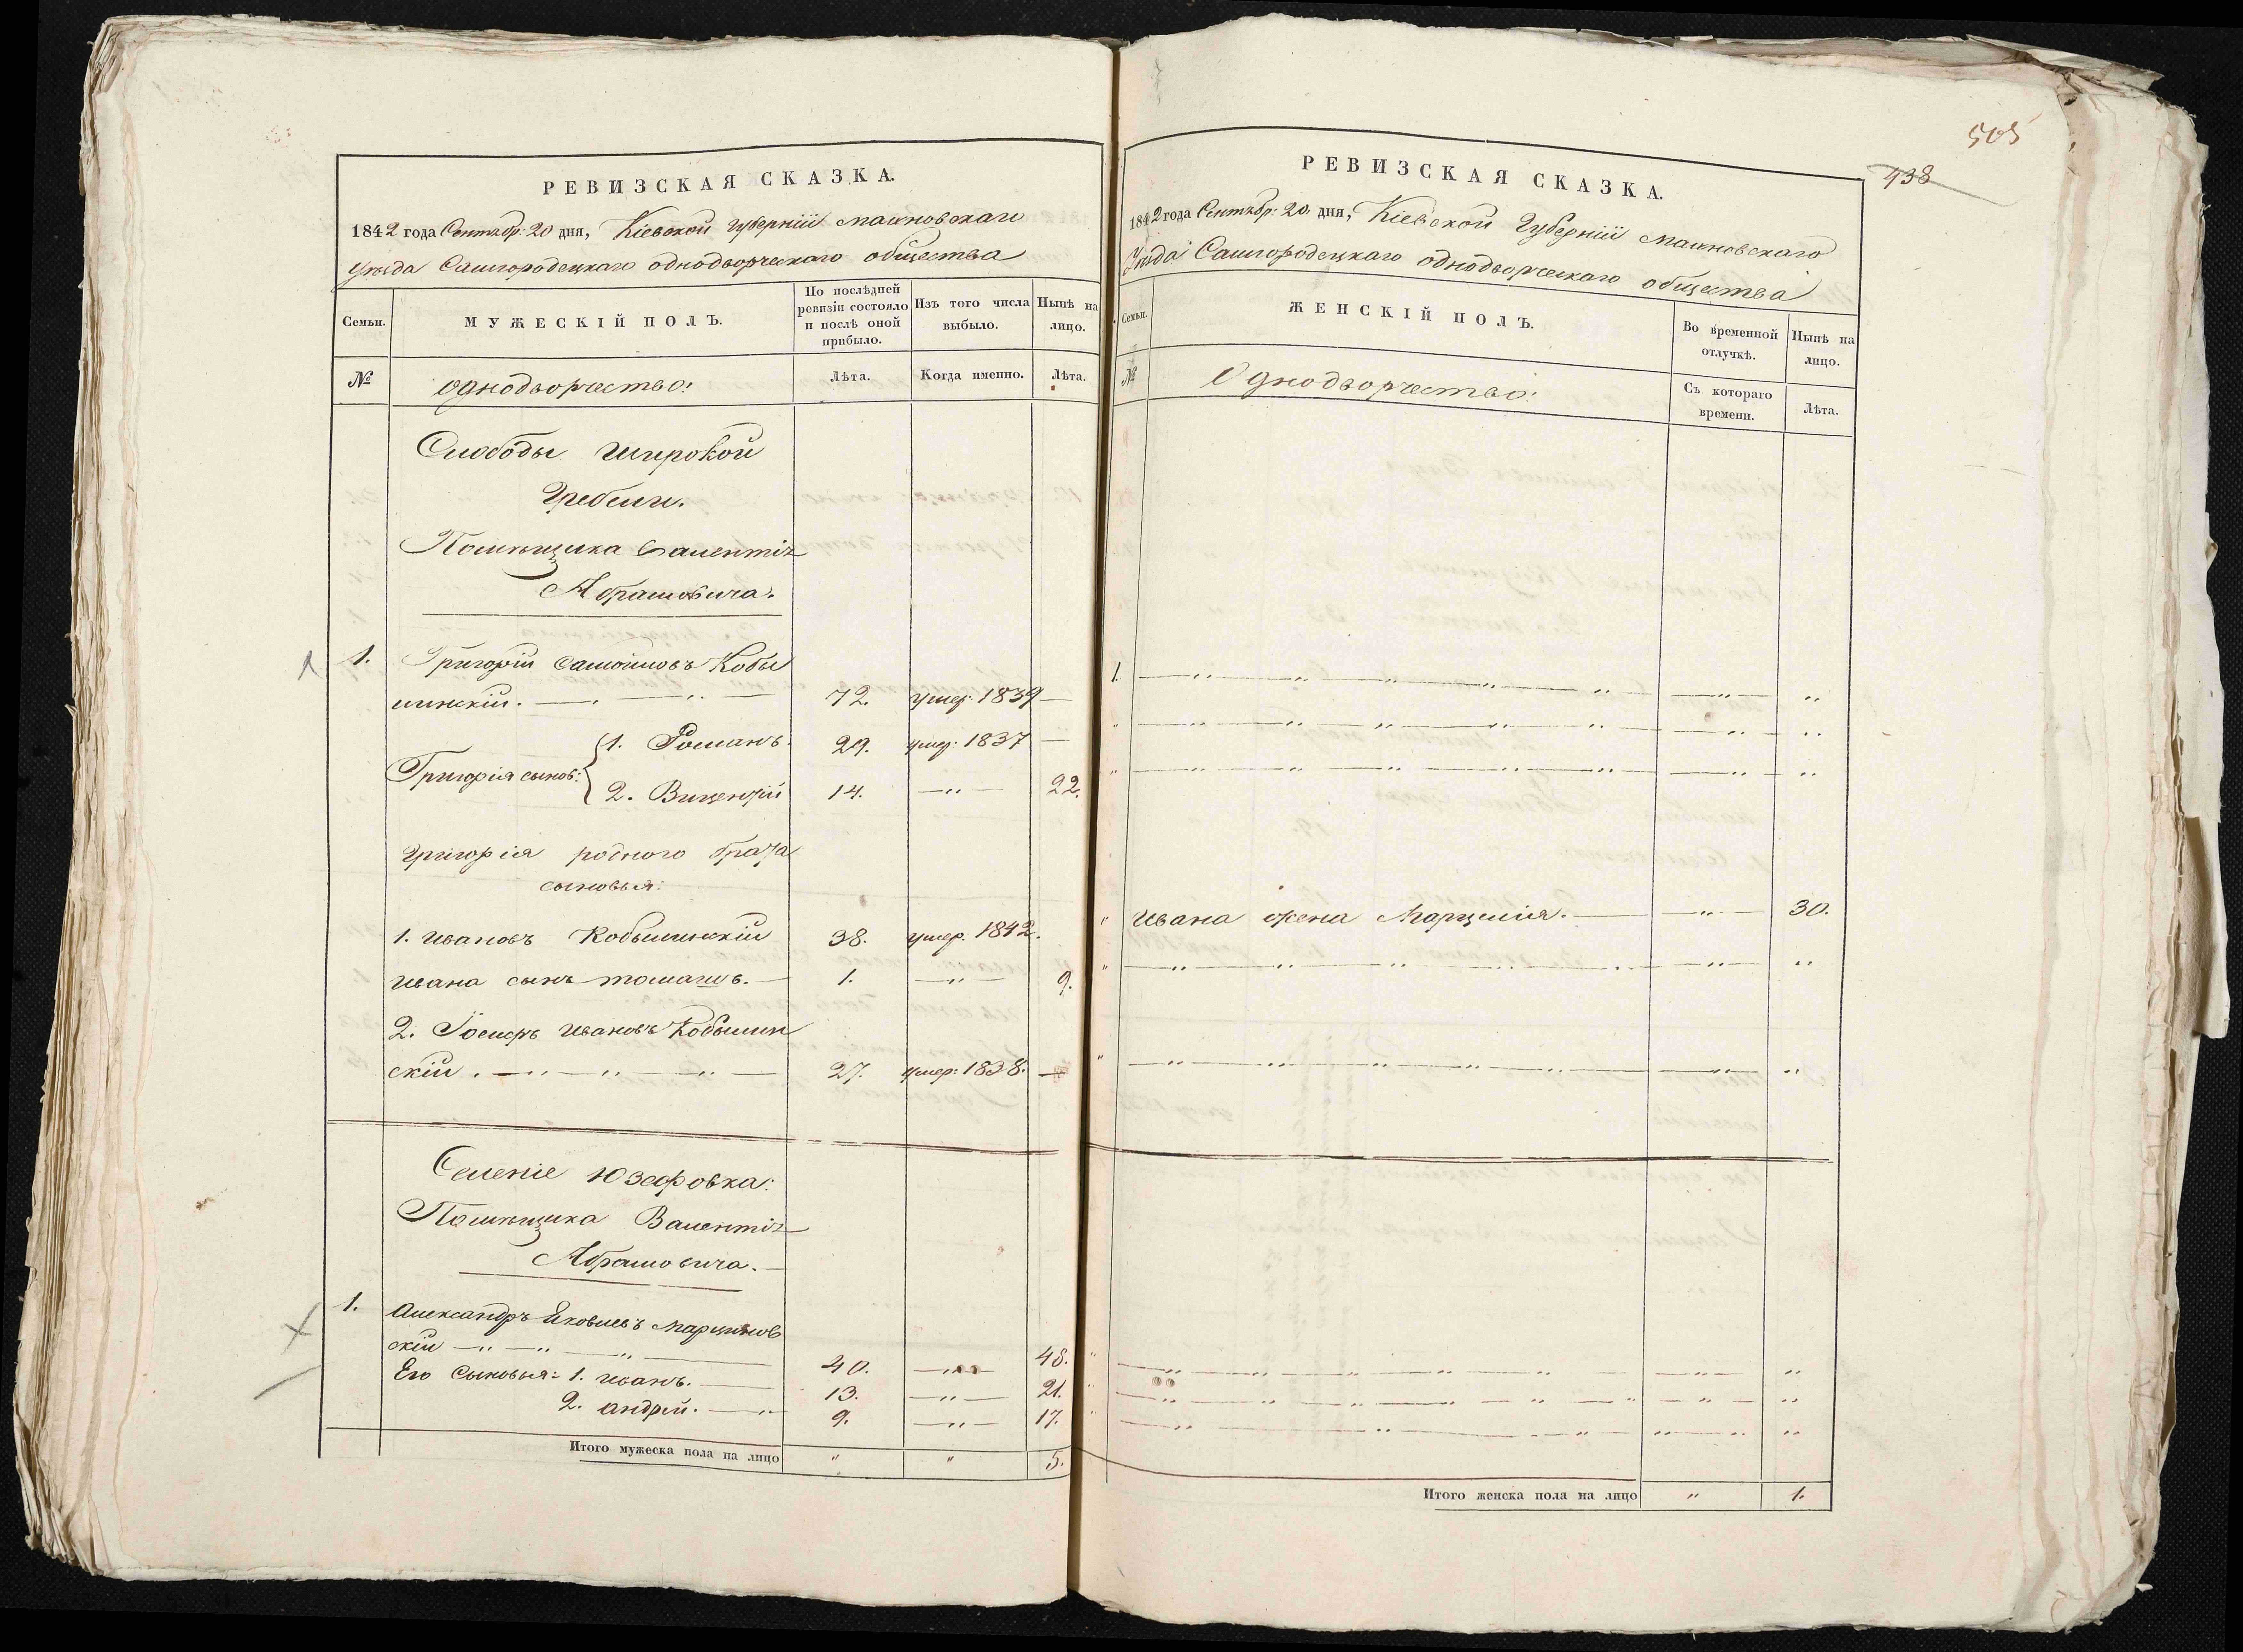 РЕВИЗСКАЯ СКАЗКА.
1842 года Сентябр: 20 дня, Кіевской губерніи Махновскаго
уѣзда Самгородецкаго однодворческаго общества
Семьи.
МУЖЕСКІЙ ПОЛЪ.
По послѣдней ревизіи состояло и послѣ оной прибыло.
Изъ того числа выбыло.
Нынѣ на лицо.
№
Однодворчество:
Лѣта.
Когда именно.
Лѣта.
Слободы Широкой
Гребли.
Помѣщика Валентія
Абрамовича.
1. Григорій Самойловъ Кобы
линскій. — 72. умер: 1839 —
Григорія сынов: 1. Романъ. 29. умер: 1837 —
2. Вицентій 14. — " — 22.
Григорія роднаго брата
сыновья:
1. Ивановъ Кобылинскій 38. умер. 1842.
Ивана сынъ Томашъ. — 1. — " — 9.
2. Іосифъ Ивановъ Кобылин
скій. — " — " — " — 27. умер: 1838. —
Селеніе Юзефовка:
Помѣщика Валентія
Абрамовича. —
1. Александръ Яковлевъ Марцинов
скій — " — " — " — 40. — " — 48.
Его сыновья: 1. Иванъ. — 13. — " — 21.
2. Андрей. — " — 9. — " — 17.
Итого мужеска пола на лицо " " 5.
505
938
РЕВИЗСКАЯ СКАЗКА.
1842 года Сентябр: 20. дня, Кіевской Губерніи Махновскаго
Уѣзда Самгородецкаго однодворческаго общества
Семьи.
ЖЕНСКІЙ ПОЛЪ.
Во временной отлучкѣ.
Нынѣ на лицо.
№
Однодворчество:
Съ котораго времени.
Лѣта.
1. — " — " — " — " — " — " — "
" — " — " — " — " — " — " — "
" — " — " — " — " — " — " — "
" Ивана жена Марцелія. — — " — 30.
" — " — " — " — " — " — " — "
" — " — " — " — " — " — " — "
" — " — " — " — " — " — " — "
" — " — " — " — " — " — " — "
" — " — " — " — " — " — " — "
Итого женска пола на лицо " 1.